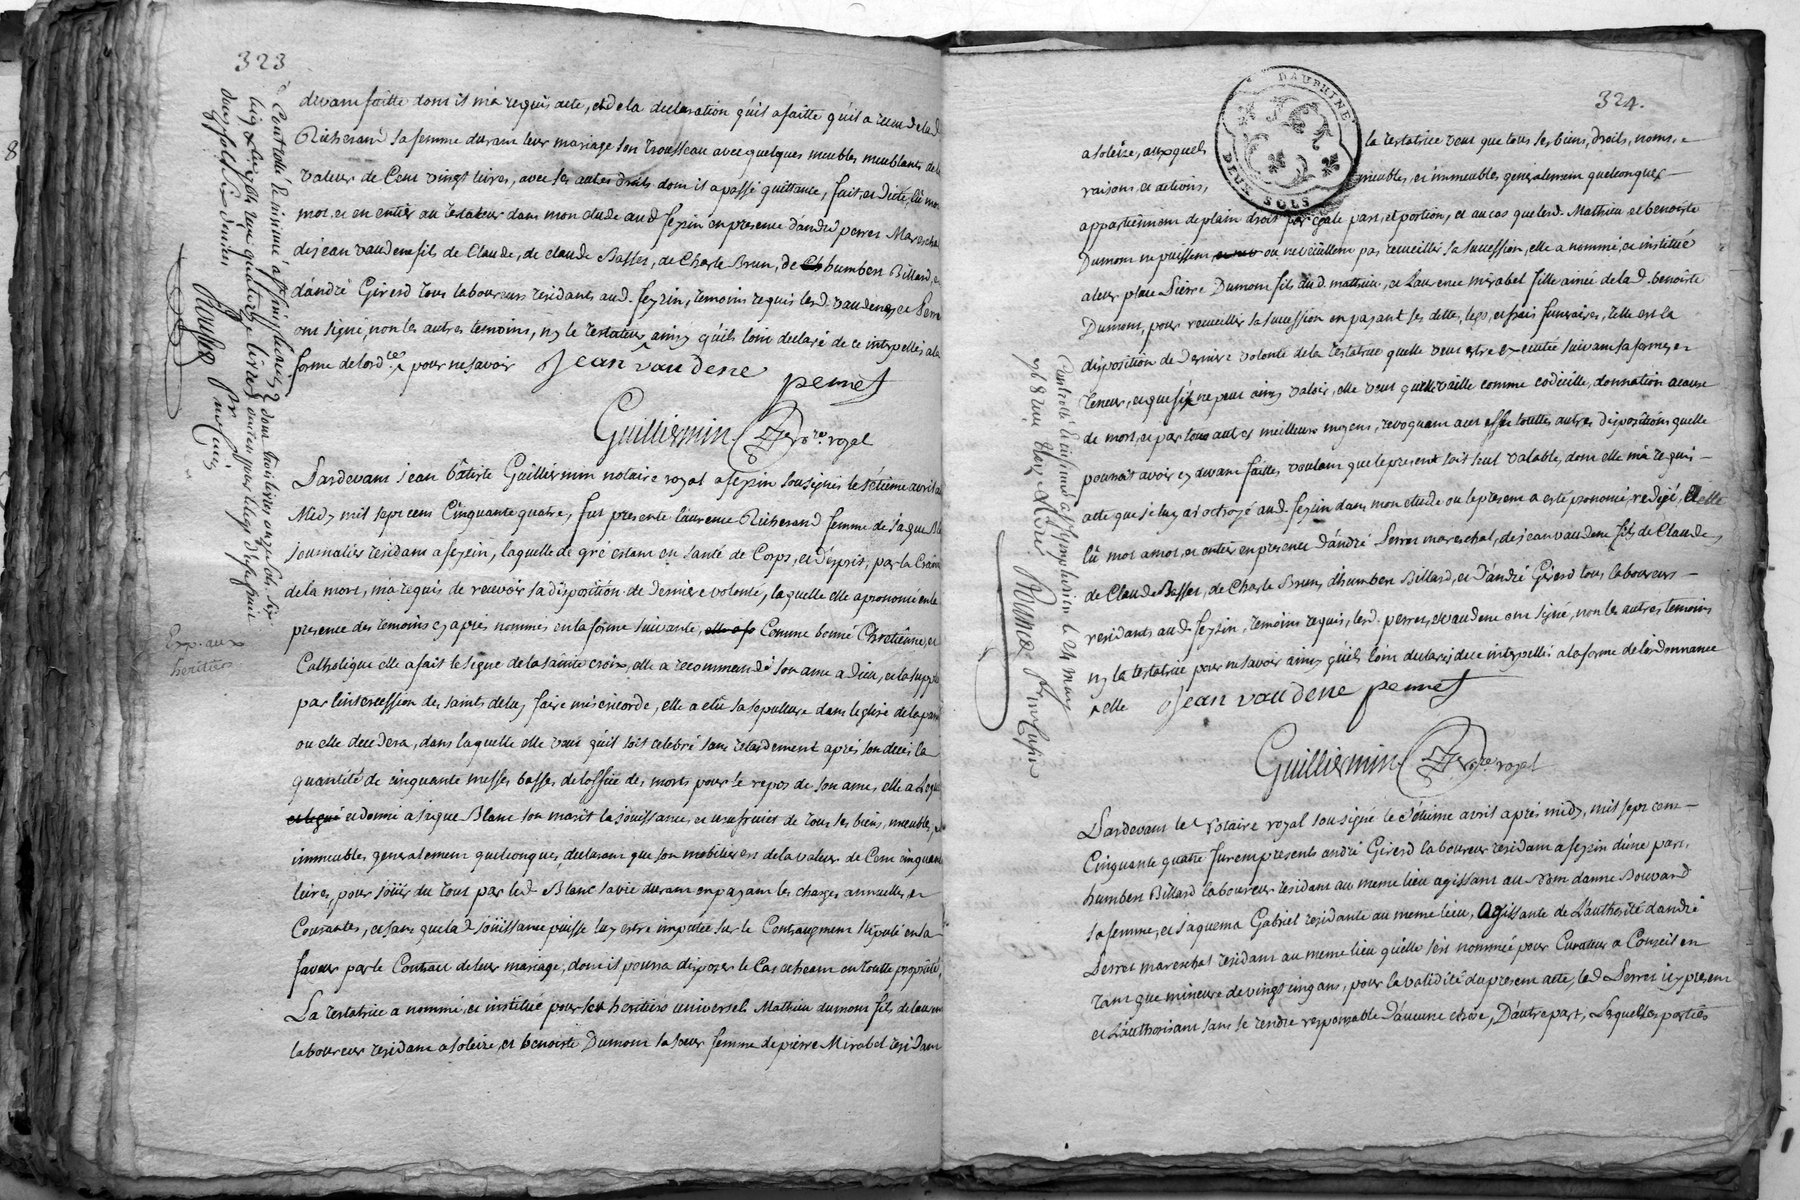 323
devant faitte dont il m'a requis acte, et de la declaration qu'il a faitte qu'il a receu de lad
Richerand sa femme durant leur mariage son trousseau avec quelques meubles meublants de la
valeur de Cent vingt livres, avec ses autres droits dont il a passé quittance, fait et dicté, lû mot
mot et en entier au testateur dans mon etude aud feyzin en presence d'andré perret Mareschal
de jean vaudene fils de Claude, de claude Basset, de Charle Brun, de humbert Billard, et
d'andré Girerd tous laboureurs residants aud. feyzin, temoins requis lesd. vaudene, et Perret
ont signé, non les autres temoins, ny le testateur ainsy qu'ils l'ont declaré de ce interpellés a la
forme de lord ce pour ne savoir Jean vaudene
perret
Guilliermin no.re royal
Pardevant jean bâtiste Guilliermin notaire royal a feyzin sousigné le sétieme avril a
Midy mil sept cens Cinquante quatre, fut presente laurence Richerand femme de jâque Bl
journalier residant a feyzin, laquelle de gré estant en santé de Corps, et d'esprit, par la Crainte
de la mort, m'a requis de recevoir sa disposition de derniere volonté, laquelle elle a prononcé en la
presence des temoins cy après nommés en la forme suivante, elle a fa Comme bonne Chretienne, et
Catholique elle a fait le signe de la sainte croix, elle a recommandé son ame a dieu, et la supplié
par l'intercession des saints de luy faire misericorde, elle a elû sa sepulture dans l'eglise de la paroi
ou elle decedera, dans laquelle elle veut qu'il soit celebré sans retardement après son decès la
quantité de cinquante messes basses de l'office des morts pour le repos de son ame, elle a legué
et legué et donné a jâque Blanc son marit la joüissance, et usufruict de tous ses biens, meubles, et
immeubles generalement quelconques, declarant que son mobilier est de la valeur de Cent cinquante
livres, pour joüir du tout par led Blanc sa vie durant en payant les charges annuelles, et
Courantes, et sans que lad joüissance puisse luy estre imputée sur le Contraugment stipulé en sa
faveur par le Contract de leur mariage, dont il pourra disposer le Cas echeant en toutte proprieté,
La testatrice a nommé, et institué pour ses heritiers universels Mathieu dumont fils de laurent
laboureur residant a soleize, et benoiste Dumont sa sœur femme de pierre Mirabel residant
Exp. aux
heritiers
324.
DAUPHINE
DEUX SOLS
a soleize, auxquels la testatrice veut que tous ses biens, droits, noms, et
raisons, et actions, meubles, et immeubles generalement quelconques
appartiennent de plain droit par égale part, et portion, et au cas que lesd. Mathieu et benoiste
Dumont ne puissent, ou ne veuillent pas recueillir sa succession, elle a nommé, et institué
a leur place Pierre Dumont fils dud. mathieu, et Laurence mirabel fille ainée de lad. benoiste
Dumont, pour recueillir sa succession en payant ses dettes, legs, et frais funeraires, telle est la
disposition de derniere volonté de la testatrice quelle veut estre executée suivant sa forme, et
teneur, et que si ne peut ainsy valoir, elle veut quelle vaille comme codicille, donnation a cause
de mort, et par tous autres meilleurs moyens, revoquant a cet effet touttes autres dispositions quelle
pourrait avoir cy devant faittes voulant que le present soit seul valable, dont elle m'a requis
acte que je luy ai octroyé aud feyzin dans mon etude ou le present a esté prononcé, redigé, et
lû mot a mot, et entier en presence d'andré Perret mareschal, de jean vaudene fils de Claude,
de Claude Basset, de Charle Brun, d'humbert Billard, et d'andré Girerd tous laboureurs
residants aud feyzin, temoins requis, lesd. perret, et vaudene ont signé, non les autres temoins
ny la testatrice pour ne savoir ainsy qu'ils l'ont declaré de ce interpellés a la forme de l'ordonnance
a elle Jean vaudene perret
Guilliermin no.re royal
Pardevant le Notaire royal sousigné le sétieme avril après midy, mil sept cent
Cinquante quatre furent presents andré Girerd laboureur residant a feyzin d'une part,
humbert Billard laboureur residant au meme lieu agissant au Nom danne Bouvard
sa femme, et jaquema Gabriel residante au meme lieu, agissante de L'authorité d'andré
Perret mareschal residant au meme lieu qu'elle s'est nommée pour Curateur a Conseil en
tant que mineure de vingt cinq ans, pour la validité du present acte, led Perret icy present
et L'authorisant sans se rendre responsable d'aucune chose, D'autre part, Lesquelles parties